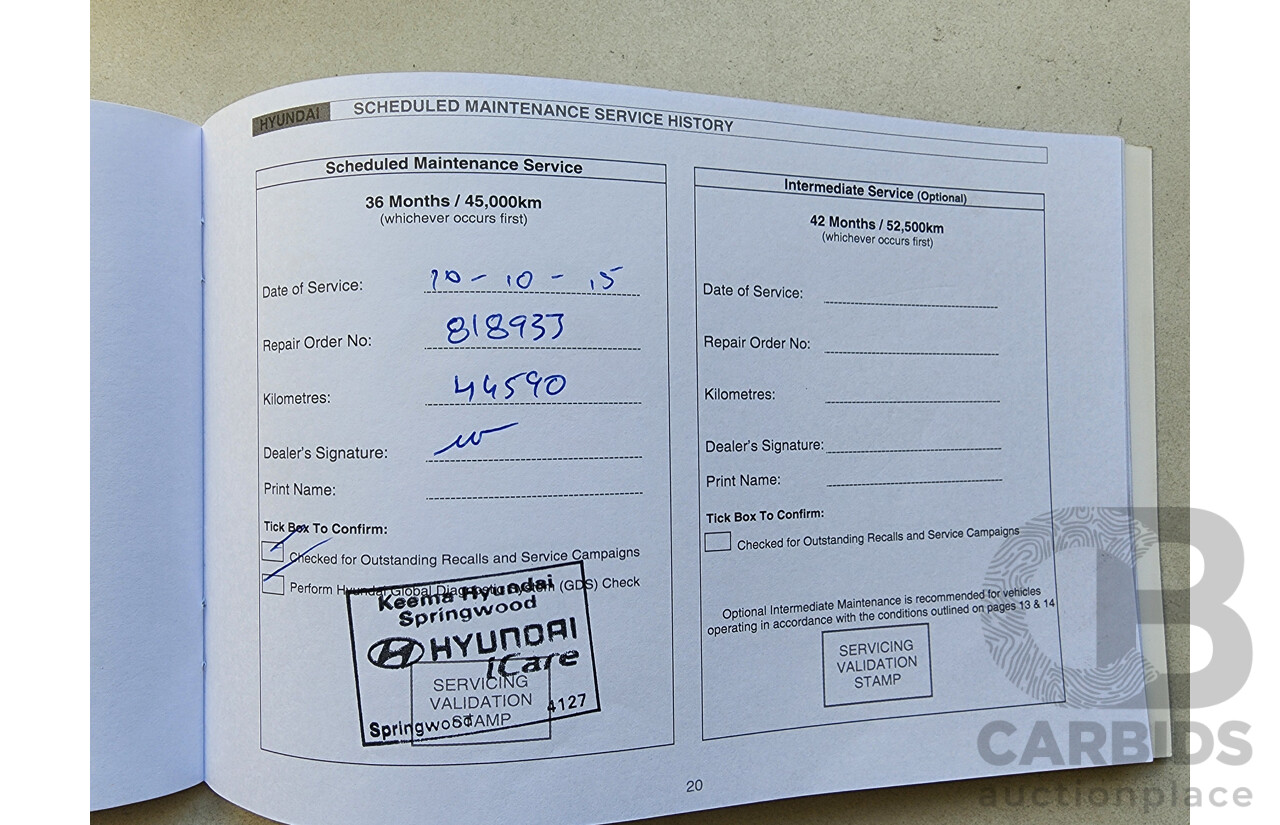 HYUNDAI SCHEDULED MAINTENANCE SERVICE HISTORY
Scheduled Maintenance Service
36 Months / 45,000km
(whichever occurs first)
Date of Service: 10-10-15
Repair Order No: 818933
Kilometres: 44590
Dealer's Signature:
Print Name:
Tick Box To Confirm:
Checked for Outstanding Recalls and Service Campaigns
Perform Hyundai Global Diagnostic System (GDS) Check
Keema Hyundai
Springwood
HYUNDAI
iCare
SERVICING
VALIDATION
STAMP
Springwood 4127
Intermediate Service (Optional)
42 Months / 52,500km
(whichever occurs first)
Date of Service:
Repair Order No:
Kilometres:
Dealer's Signature:
Print Name:
Tick Box To Confirm:
Checked for Outstanding Recalls and Service Campaigns
Optional Intermediate Maintenance is recommended for vehicles
operating in accordance with the conditions outlined on pages 13 & 14
SERVICING
VALIDATION
STAMP
20
CB
CARBIDS
auctionplace